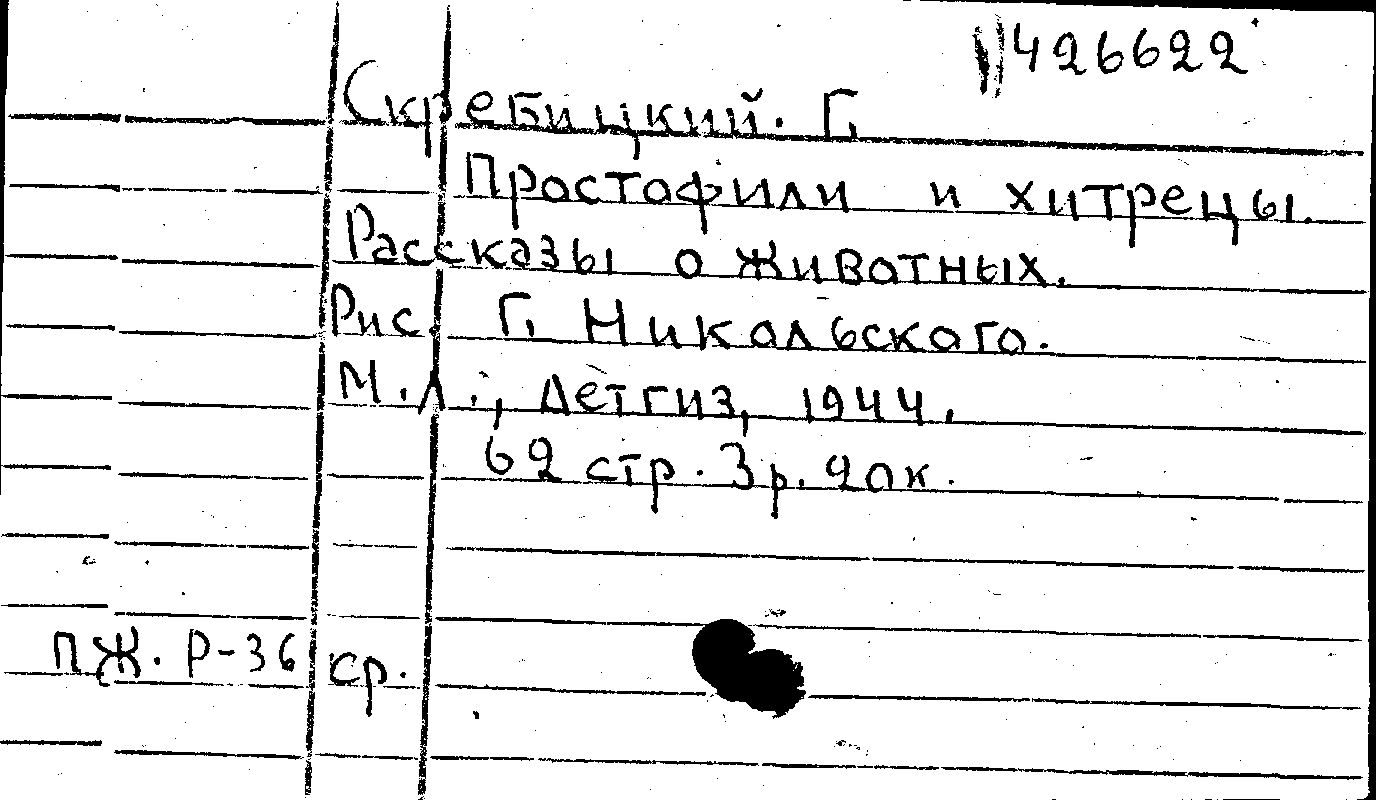 426622
Скребицкий. Г.
Простафили и хитрецы.
Рассказы о животных.
Рис. Г. Никольского.
М.Л., Детгиз, 1944.
62 стр. 3р. 20к.
п.ж. Р-36 ср.